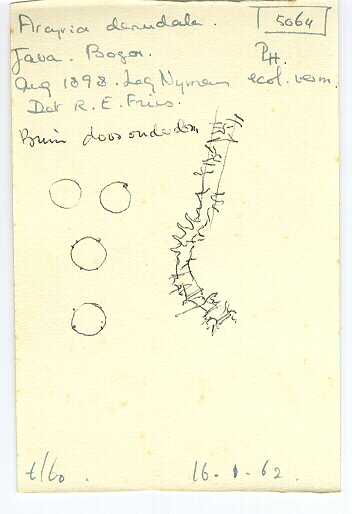 Arcyria denudata. 5064
Java. Bogor. PH.
Aug 1898. Leg Nyman ecol. verm.
Det R. E. Fries.
Bruin
t/60. 16-1-62.